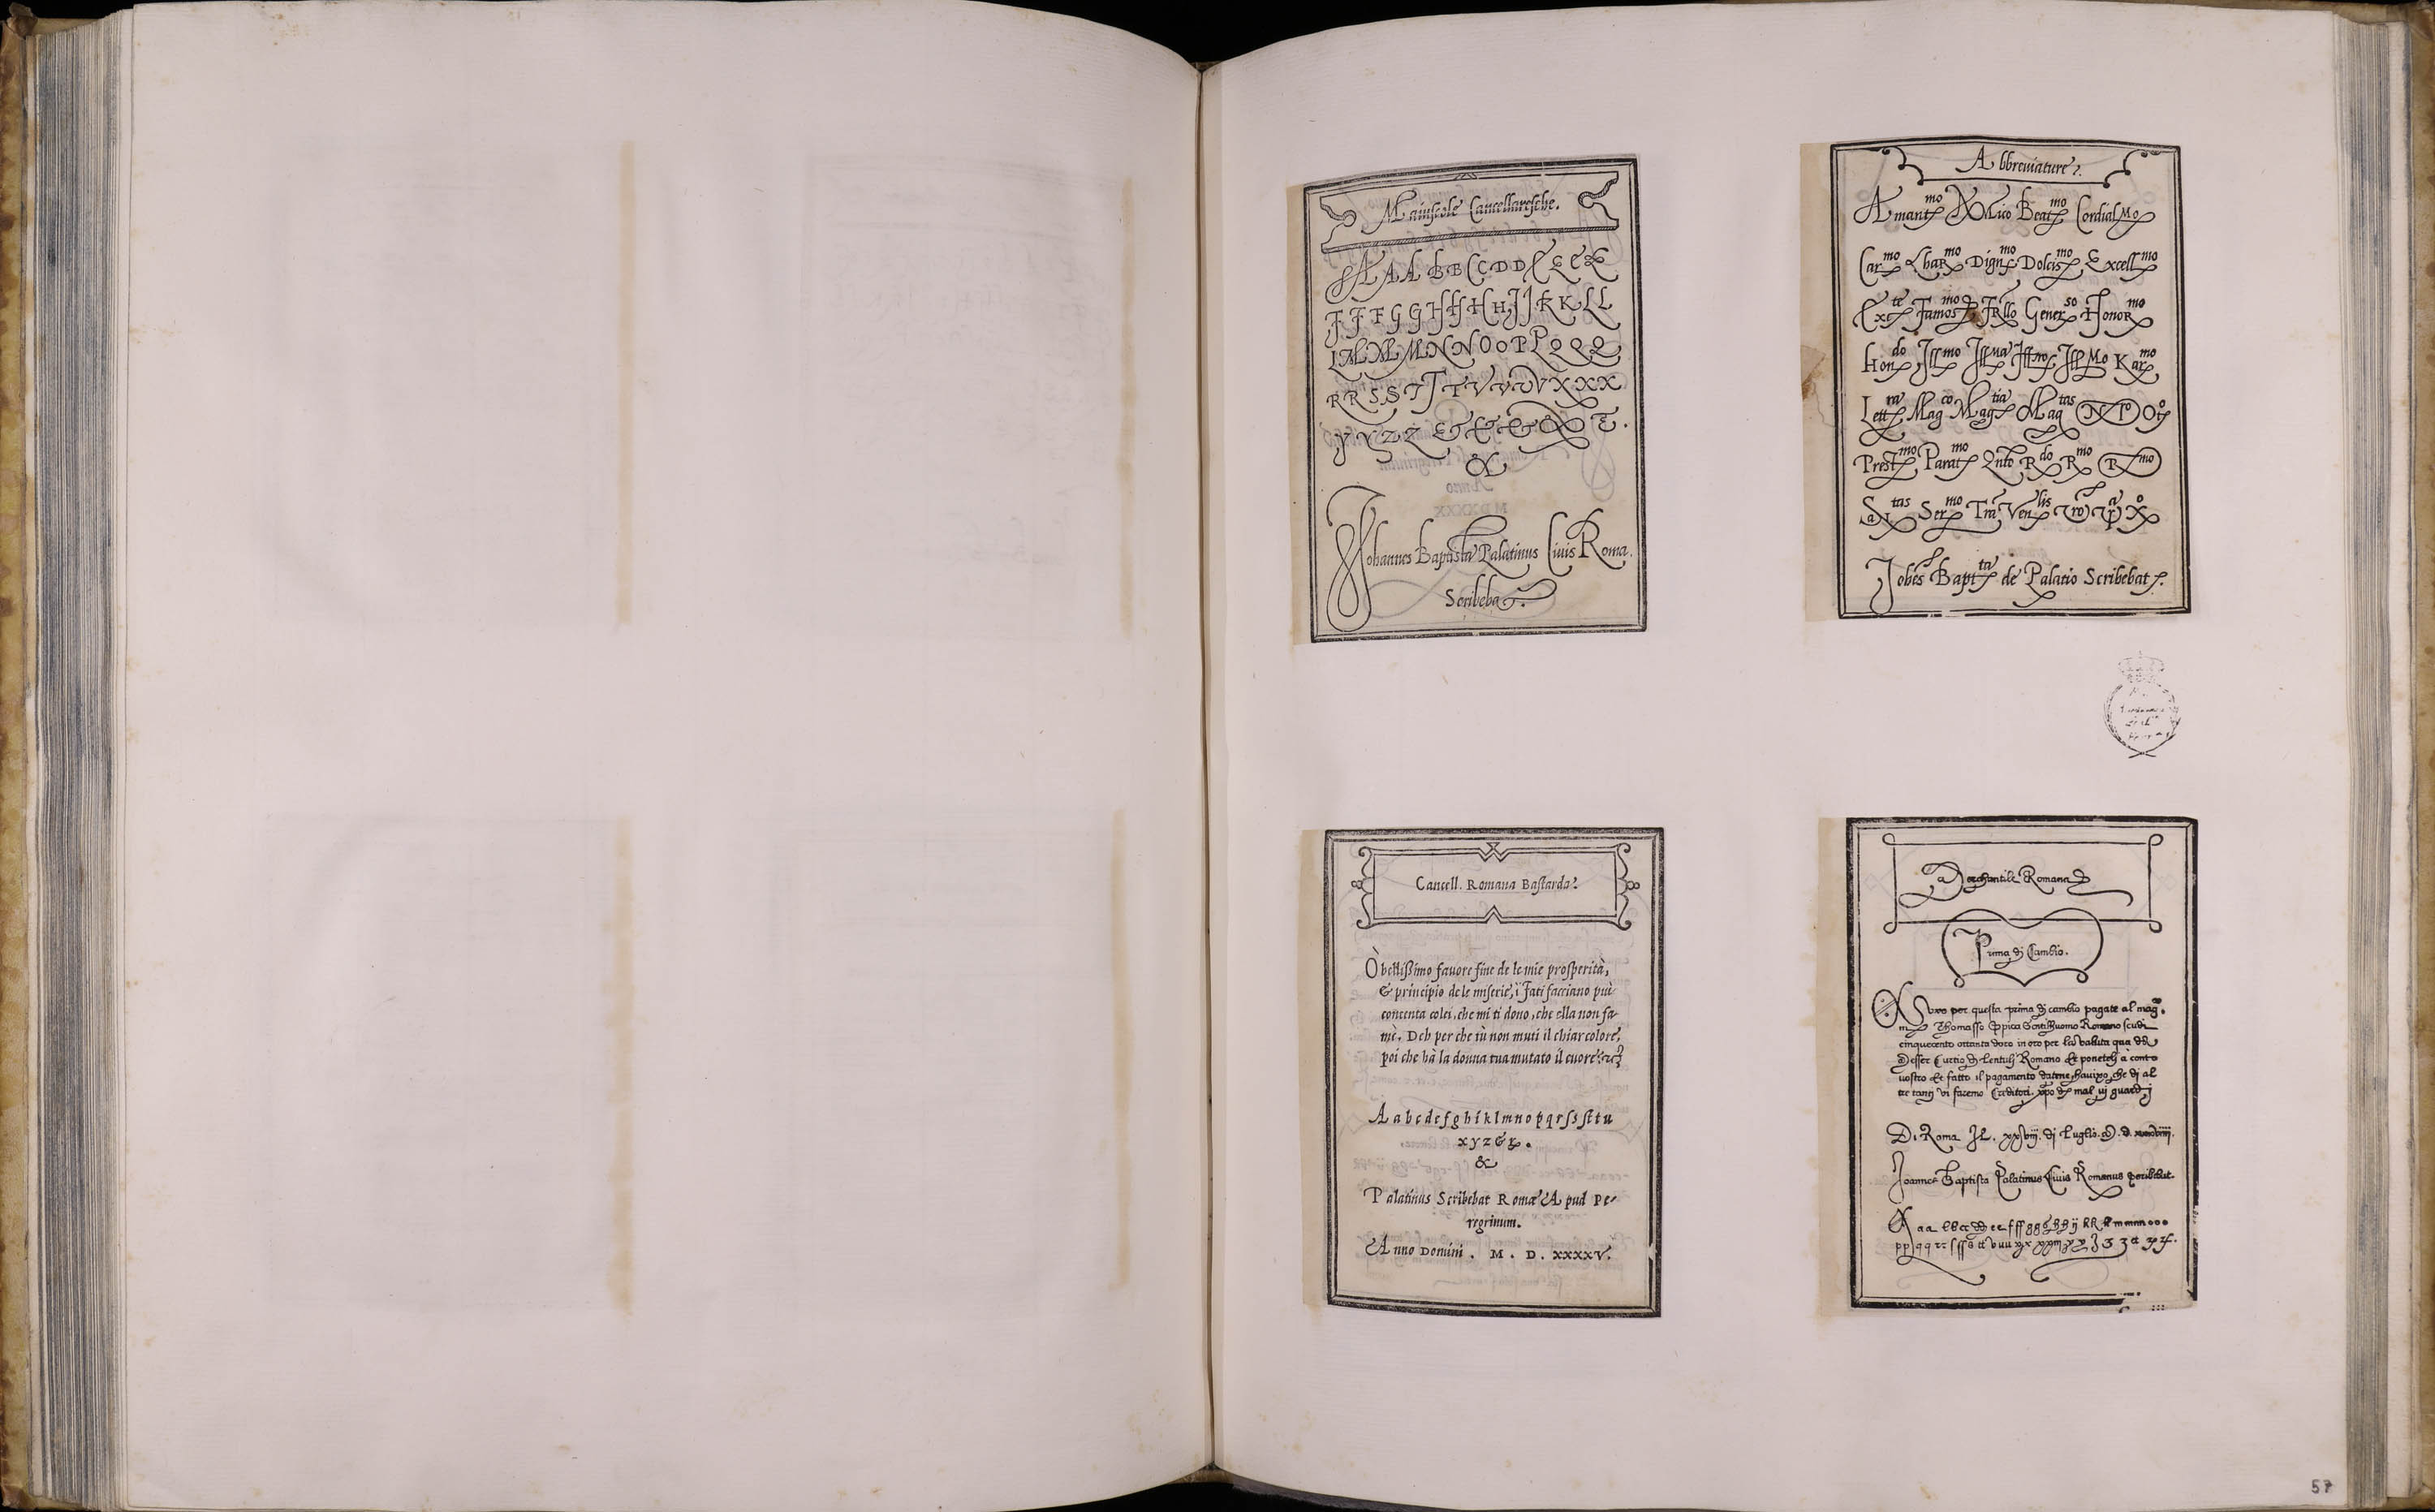 Maiuscole Cancellaresche.
A A A B B C C D D E E E E
F F F G G H H H H J J K K L L
L M M M N N O O P P Q Q Q
R R S S T T T V V V V X X X
Y Y Z Z & & & &
&
Johannes Baptista Palatinus Ciuis Roma.
Scribebat.
Abbreuiature.
Amant mo Beat mo Cordial Mo
Car mo Char mo Dign mo Dolcis mo Excell mo
Ext te Famos mo Gener so Honor mo
Hon do Kar mo
Lett ra Mag co Mag tia Mag tas
Prest mo Parat mo R do R mo R mo
Sa tas Ser mo Tra Ven lis
Jobes Bapt ta de Palatio Scribebat.
Cancell. Romana Bastarda.
Ò bellissimo fauore fine de le mie prosperità,
& principio de le miserie, i Fati facciano più
contenta colei, che mi ti dono, che ella non fa
me. Deh per che tù non muti il chiar colore,
poi che hà la donna tua mutato il cuore
A a b c d e f g h i k l m n o p q r ſ s ſt t u
x y z & .
&
Palatinus Scribebat Romæ Apud Pe-
regrinum.
Anno Domini. M. D. XXXXV.
Merchantile Romana
Prima di Cambio.
per questa prima di cambio pagate al mag.
Thomasso Gentilhuomo Romano scudi
cinquecento ottanta doro in oro per la valuta qua da
Messer Curtio di Lentulj Romano et ponetelj à conto
uostro et fatto il pagamento datene che di al
tre tantj vi faremo Creditori. xpo di mal uj guardj
Di Roma Il. xxviij. di Luglio.
Joannes Baptista Palatinus Ciuis Romanus scribebat.
57